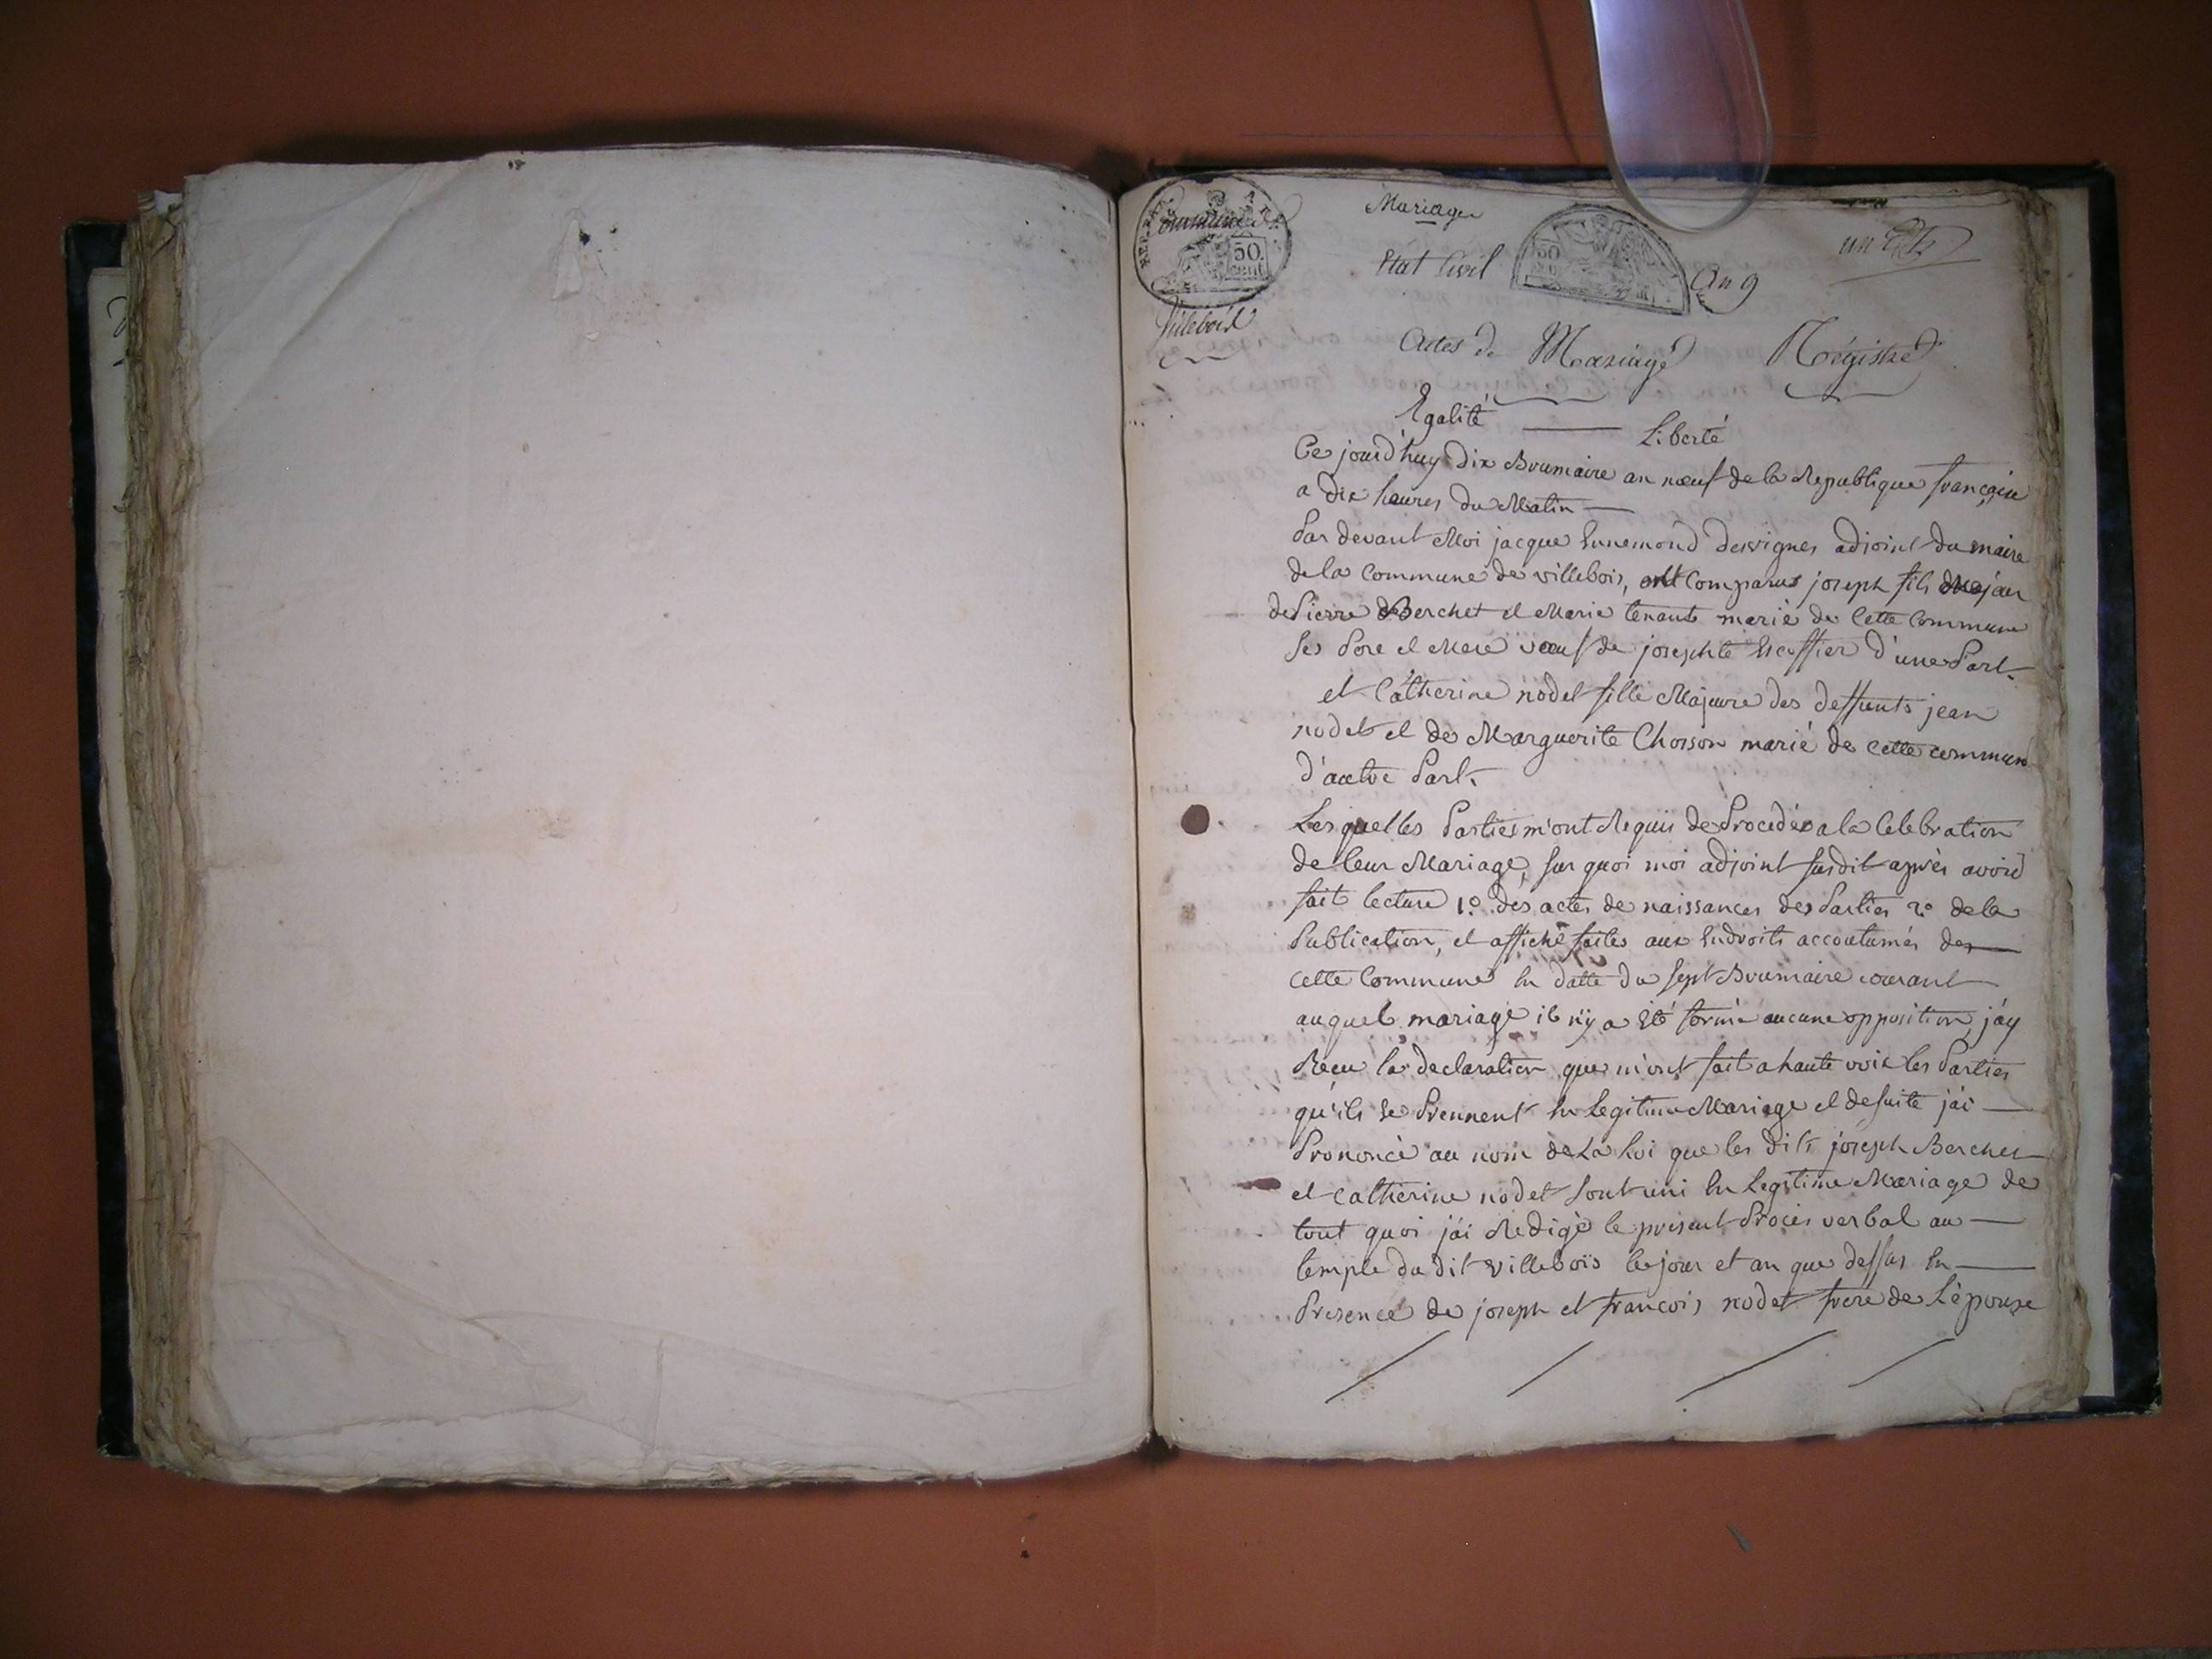 Commune
Villebois
50
cent
Mariages
Etat Civil
An 9
un
Actes de Mariage Régistre
Egalité — Liberté
Ce jourd'huy dix Brumaire an neuf de la Republique françoise
a dix heures du Matin —
Par devant Moi jacque Ennemond desvignes adjoint du maire
de la Commune de villebois, est Comparus joseph fils
de Pierre Berchet et Marie tenant marié de Cette Commune
Ses Pere et Mere veuf de josephte Escoffier d'une Part.
et Catherine nodet fille Majeure des deffunts jean
nodet et de Marguerite Choson marié de Cette commun
d'autre Part.
Lesquelles Parties m'ont Requis de Procedér a la Celebration
de leur Mariage, sur quoi moi adjoint susdit après avoir
fait lecture 1o. des actes de naissances des Parties 2o de la
Publication, et affiche faites aux Endroits accoutumés de
cette Commune En datte du sept Brumaire courant
auquel mariage il n'y a Eté formé aucune opposition, j'ay
Recu la declaration que m'ont fait a haute voix les Parties
qu'ils se Prennent En Legitime Mariage et de suite j'ai —
Prononcé au nom de La Loi que les dits joseph Berchet
et catherine nodet sont uni En Legitime Mariage de
tout quoi j'ai Redigé le present Procés verbal au —
temple du dit villebois le jour et an que dessus En —
Presence de joseph et francois nodet frere de L'épouse